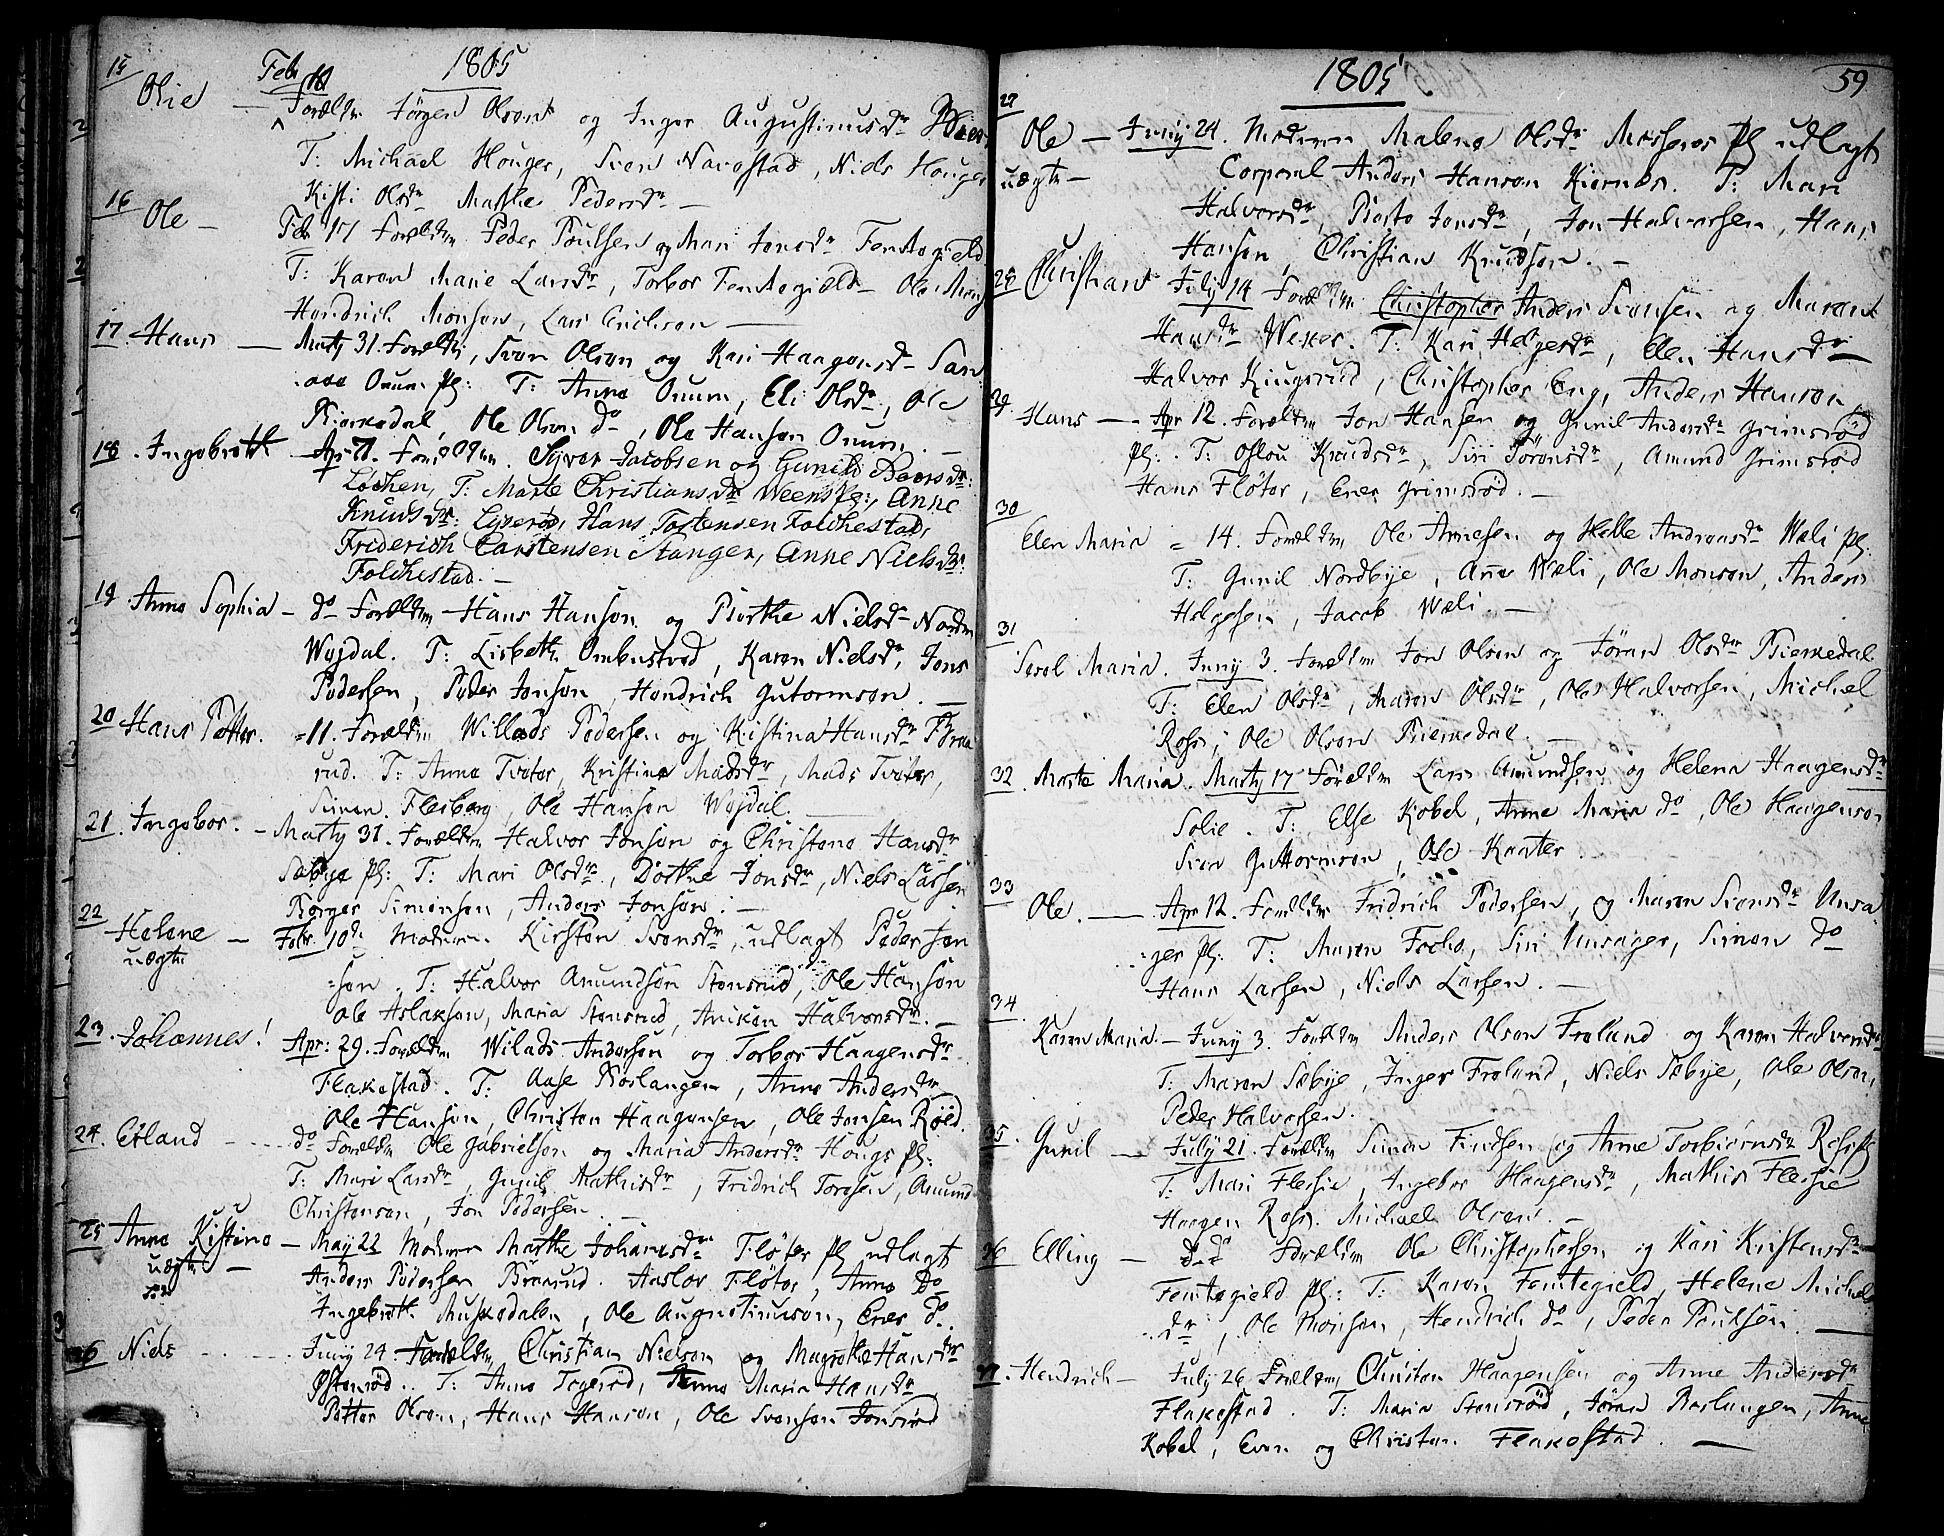 1805
15 Olie — Feb 10
Forældrn Jørgen Olsen og Inger Augustinusdr
T: Michael Houger, Sven Navestad, Niels Houger
Kisti Olsdr Marthe Pedersdr —
16 Ole — Feb 17 Forældrn Peder Poulsen og Mari Jonsdr Femtegield
T: Karen Marie Larsdr, Torbor Femtegield — Ole Mons
Hendrich Monsen, Lars Erichsen —
17 Hans — Marty 31. Foreldr, Sven Olsen og Kari Haagensdr San
Onum pl: T: Anne Onum, Eli Olsdr, Ole
Biermedal, Ole Olsen do, Ole Hansen Onum. —
18. Ingebrett Apr 7. Forældrn. Syver Jacobsen og Gunild
Løchen, T: Marte Christiansdr Weens pl:, Anne
Knudsdr: Lyserød, Hans Tostensen Folchestad,
Friderich Carstensen Stanger, Anne Nielsdr:
Folchestad. —
19 Anne Sophia — do Forældrn Hans Hansen og Birthe Nielsdr Nordre
Wojdal. T: Lisbeth Ombustvedt, Karen Nielsdr, Jens
Pedersen, Peder Jonson, Hendrich Gutormson. —
20 Hans Petter. = 11. Forældrn Willads Pedersen og Kistina Hansdr Braa
rud. T: Anne Tveter, Kristine Madsdr, Mads Tveter,
Simen Flesberg, Ole Hansen Wojdal —
21. Ingebor. — Marty 31. Forældrn Halvor Jonsen og Christene Hansdr
Sæbye pl: T: Mari Olsdr, Dorthe Jonsdr, Niels Larsen
Borger Simensen, Anders Jonsen. —
22 Helene — Febr. 10de Moderen Kirsten Svensdr, udlagt Peder Jen
uægte
sen. T: Halvor Amundsen Stensrud, Ole Hansen
Ole Aslaksen, Maria Stensrud, Aniken Halvorsdr. —
23. Johannes! Apr: 29. Forældrn Wilads Andersen og Torbor Haagensdr
Flakestad. T: Aase Roslangen, Anne Andersdr
Ole Hansen, Christen Haagensen, Ole Jensen Røed.
24. Erland — do Forældrn Ole Gabrielsen og Maria Andersdr Hougs pl:
T: Mari Larsdr, Gunil Mathisdr, Fridrich Toresen, Amund
Christensen, Jon Pedersen. —
25 Anne Kistine — May 22 Moderen Marthe Johanesdr Fløter pl udlagt
uægte —
Anders Pedersen Braarud. Aaslov Fløter, Anne Do
Ingebreth Muskedalen, Ole Augustinusen, Ener do.
26 Niels — Juny 24. Forældrn Christian Nielsen og Magrethe Hansdr
Østenrød. T: Anne Tegerød, Anne Maria Hansdr
Petter Olsen, Hans Hansen, Ole Svensen Jonsrød
1805 59
27
Ole — Juny 24. Moderen Malene Olsdr Mosseros pl udlagt
uægte — Corporal Anders Hansen Kiernes. T: Mari
Halvorsdr, Birte Jonsdr, Jon Halvorsen, Hans
Hansen, Christian Knudsøn. —
28 Christians July 14 Forældrn Christopher Anders Svensen og Maren
Hansdr Weker. T: Kari Helgesdr, Elen Hansdr
Halvor Kingsrud, Christopher Eng, Anders Hansen
29. Hans — Apr 12. Forældrn Jon Hansen og Gunil Andersdr Grimsrød
pl:. T: Oslou Knudsdr, Siri Sørensdr, Amund Grimsrød
Hans Fløter, Ener Grimsrød. —
30
Elen Maria = 14. Forældrn Ole Arnesen og Helle Andreasdr Wæli pl.
T: Gunil Nordbye, Ane Wæli, Ole Monsen, Anders
Helgesen, Jacob Wæli. —
31
Serol Maria. Juny 3. Forældrn Jon Olsen og Jøran Olsdr Biermedal
T: Elen Olsdr, Maren Olsdr, Ole Halvorsen, Michel
Ross, Ole Olsen Biermedal. —
32. Marte Maria. Marty 17 Forældrn Lars Amundsen og Helena Haagensdr
Solie. T: Else Kobel, Anne Maria do, Ole Haagensen
Sven Guttormson, Ole Kaater.
33
Ole. — Apr 12. Forældrn Fridrich Pedersen, og Maren Svensdr Unsa
ger pl: T: Maren Focho, Siri Unsager, Simen do
Hans Larsen, Niels Larsen. —
34
Karen Maria. — Juny 3. Forældrn Anders Olsen Froland og Karen Halvorsdr
T: Maren Sæbye, Inger Froland, Niels Sæbye, Ole Olsen,
Peder Halvorsen.
35. Gunil — July 21. Forældrn Simen Findsen og Anne Torbiørnsdr Ross pl
T: Mari Flessie, Ingebor Haagensdr, Mathis Flessie
Haagen Ross. Michael Olsen. —
36 Elling — do Forældrn Ole Christophersen og Kari Kristensdr
Femtegield pl: T: Karen Femtegield, Helene Michels
dr, Ole Monsen, Hendrich do, Peder Poulsen. —
37. Hendrich — July 26 Forældrn, Christen Haagensen og Anne Andersdr
Flakestad. T: Maria Stensrød, Jøran Roslangen, Anne
Kobel, Even og Christen Flakestad. —